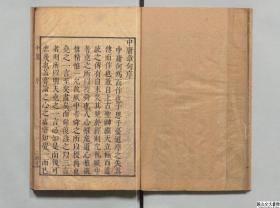 中庸章句序
中庸何為而作也子思子憂道學之失其
傳而作也蓋自上古聖神繼天立極而道
統之傳有自來矣其見於經則允執厥中
者堯之所以授舜也人心惟危道心惟微
惟精惟一允執厥中者舜之所以授禹也
堯之一言至矣盡矣而舜復益之以三言
者則所以明夫堯之一言必如是而後可
庶幾也蓋嘗論之心之虛靈知覺一而已
中庸 序